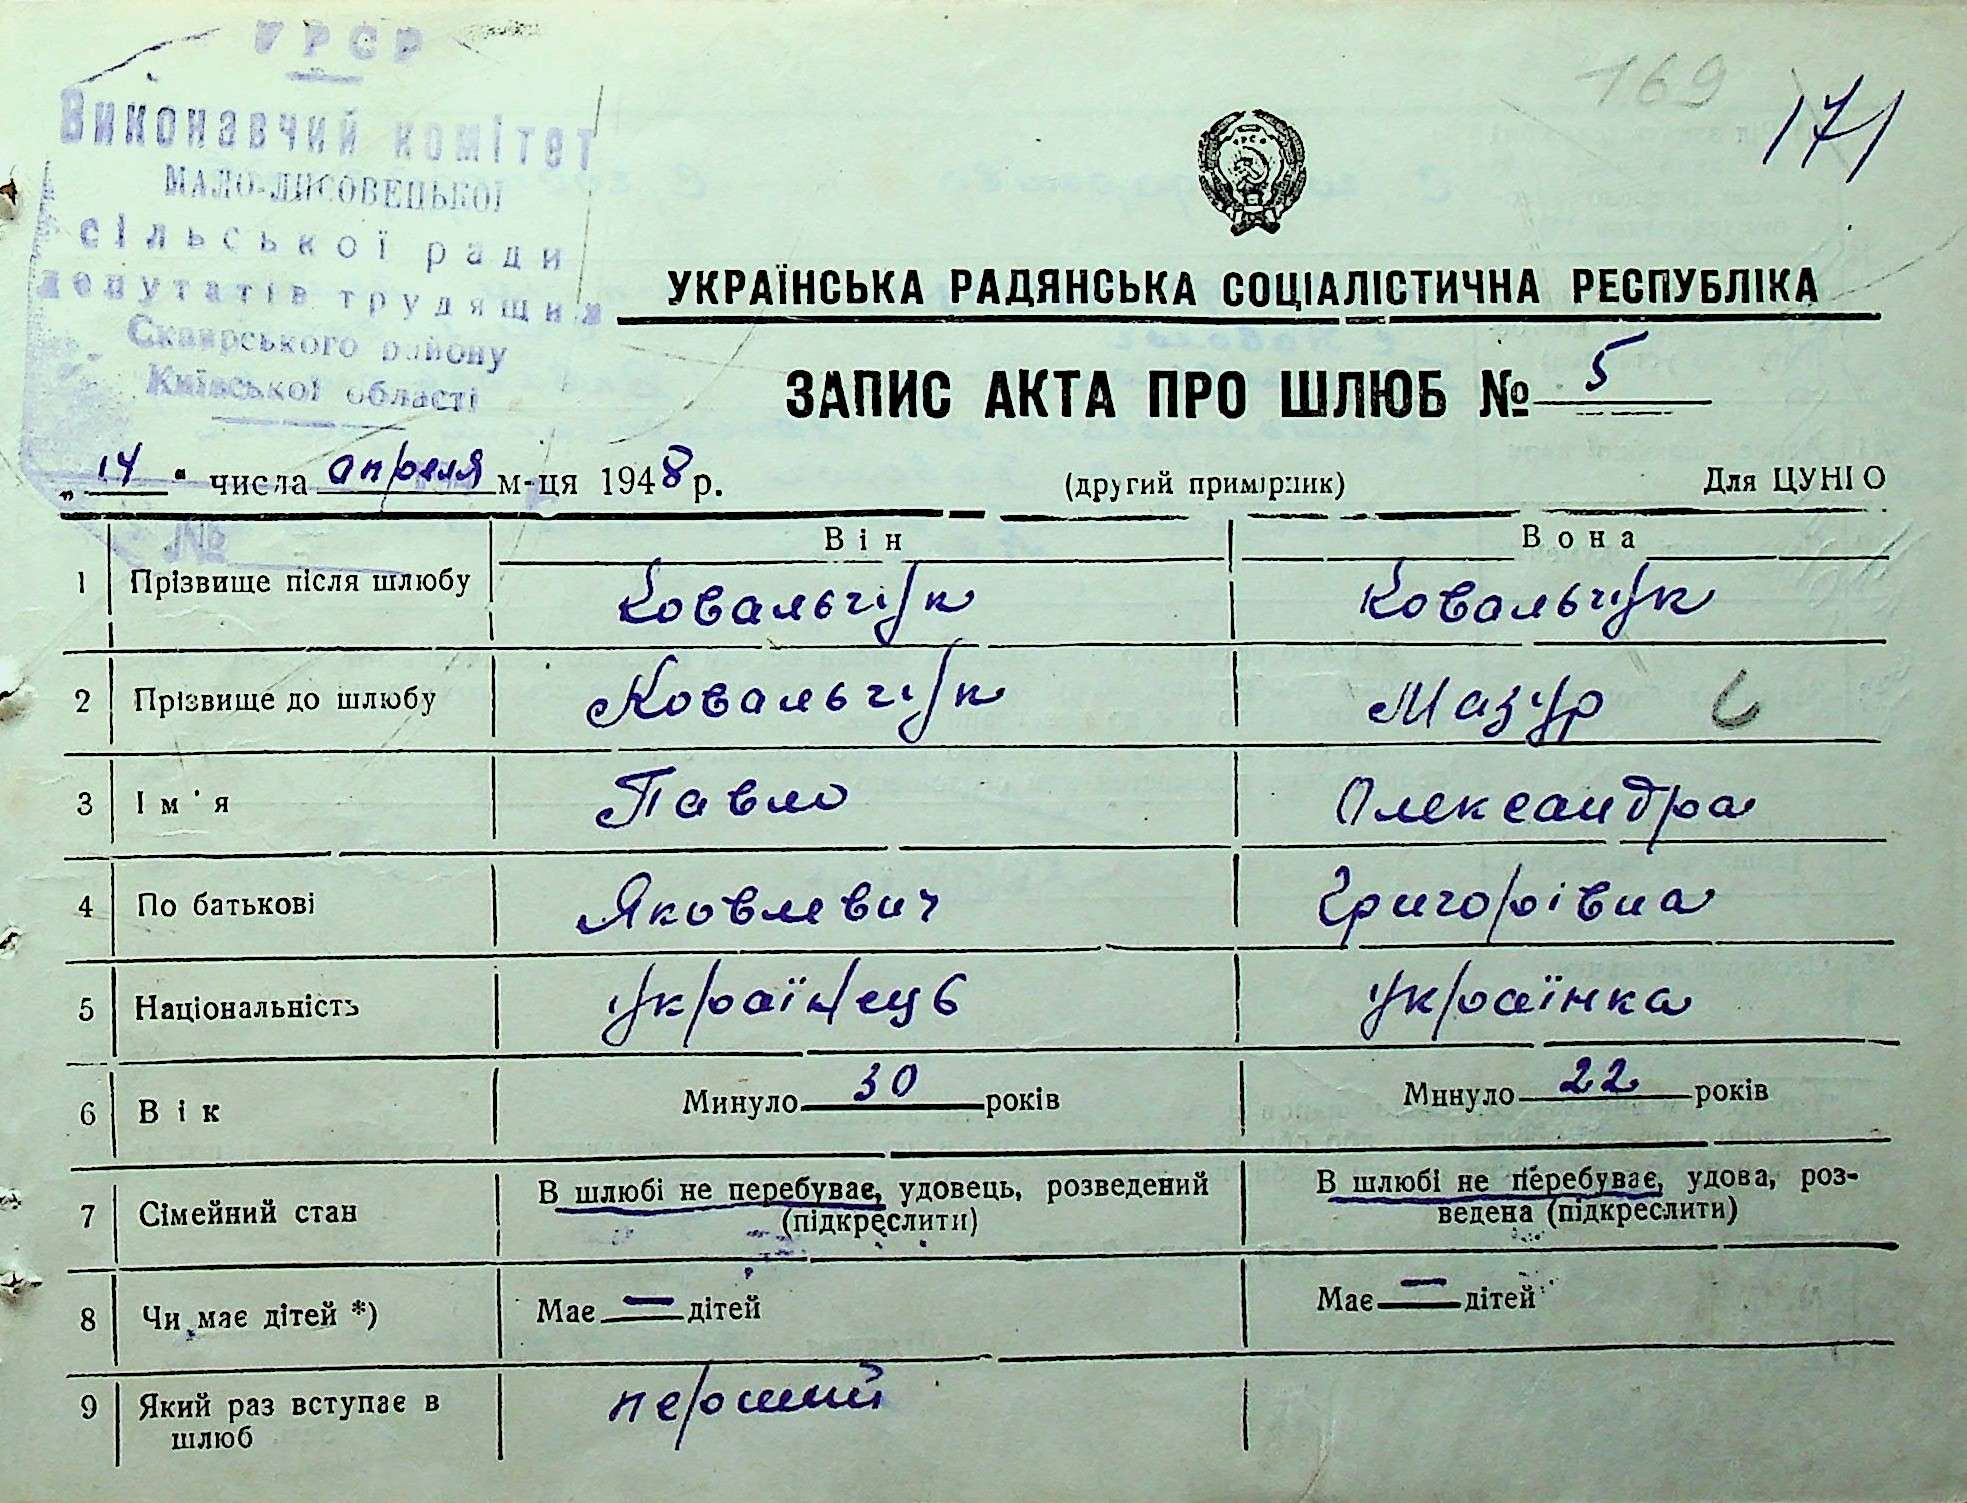 УРСР
Виконавчий комітет
МАЛО-ЛИСОВЕЦЬКОЇ
сільської ради
депутатів трудящих
Сквирського району
Київської області
№
169
171
УРСР
УКРАЇНСЬКА РАДЯНСЬКА СОЦІАЛІСТИЧНА РЕСПУБЛІКА
ЗАПИС АКТА ПРО ШЛЮБ № 5
„14" числа апреля м-ця 1948 р. (другий примірник) Для ЦУНГО
Він Вона
1 Прізвище після шлюбу Ковальчук Ковальчук
2 Прізвище до шлюбу Ковальчук Мазур
3 Ім'я Павло Олександра
4 По батькові Яковлевич Григорівна
5 Національність Українець Українка
6 Вік Минуло 30 років Минуло 22 років
7 Сімейний стан В шлюбі не перебуває, удовець, розведений В шлюбі не перебуває, удова, роз-
(підкреслити) ведена (підкреслити)
8 Чи має дітей *) Має — дітей Має — дітей
9 Який раз вступає в перший
шлюб